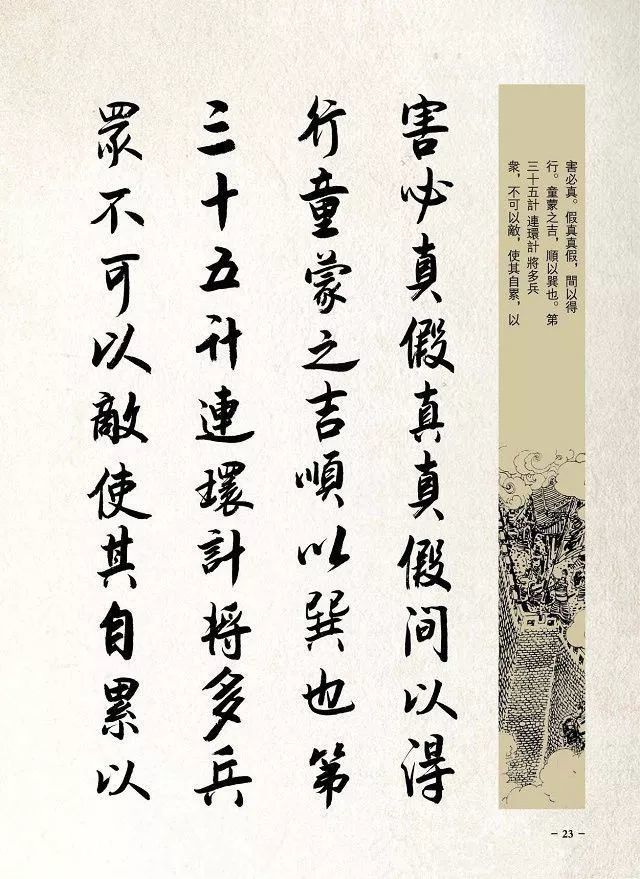 害必真假真真假间以得
行童蒙之吉順以巽也第
三十五计連環計将多兵
眾不可以敵使其自累以
害必真。假真真假，間以得
行。童蒙之吉，順以巽也。第
三十五計 連環計 將多兵
衆，不可以敵，使其自累，以
- 23 -